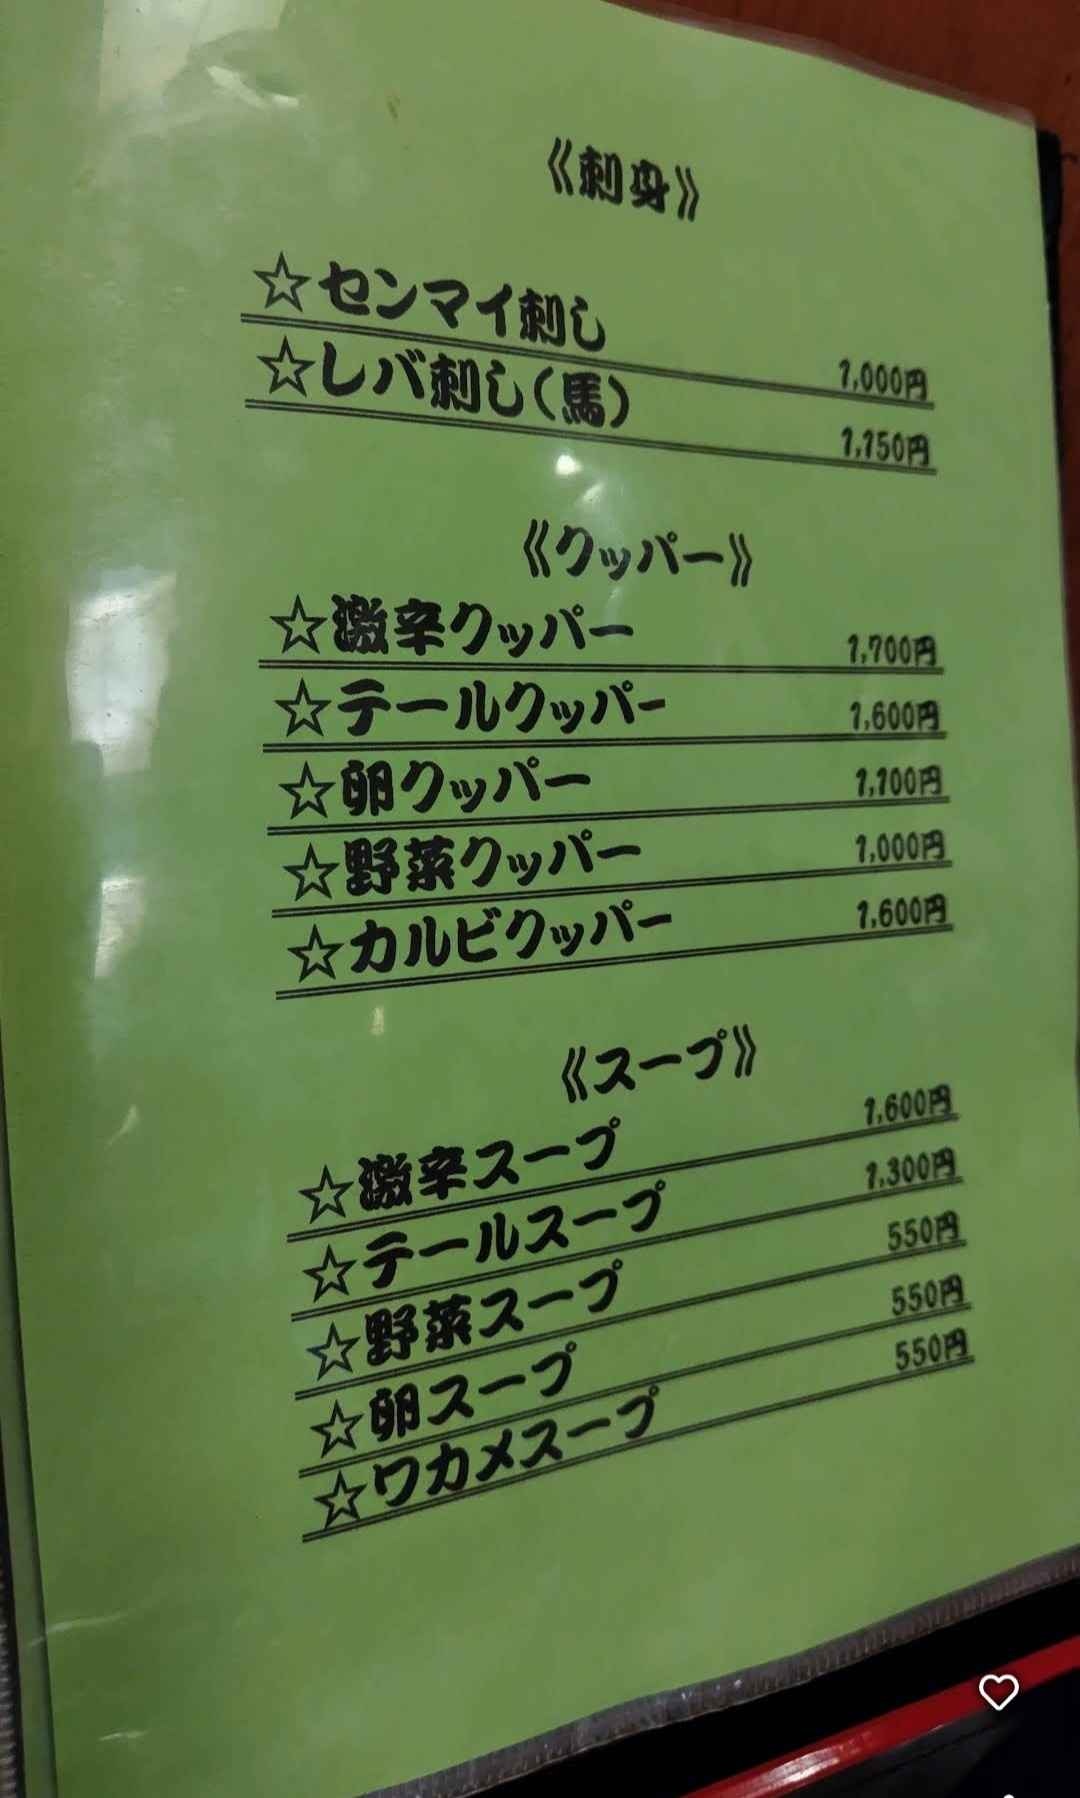 《刺身》
☆センマイ刺し 1,000円
☆レバ刺し(馬) 1,150円
《クッパー》
☆激辛クッパー 1,700円
☆テールクッパー 1,600円
☆卵クッパー 1,100円
☆野菜クッパー 1,000円
☆カルビクッパー 1,600円
《スープ》
☆激辛スープ 1,600円
☆テールスープ 1,300円
☆野菜スープ 550円
☆卵スープ 550円
☆ワカメスープ 550円